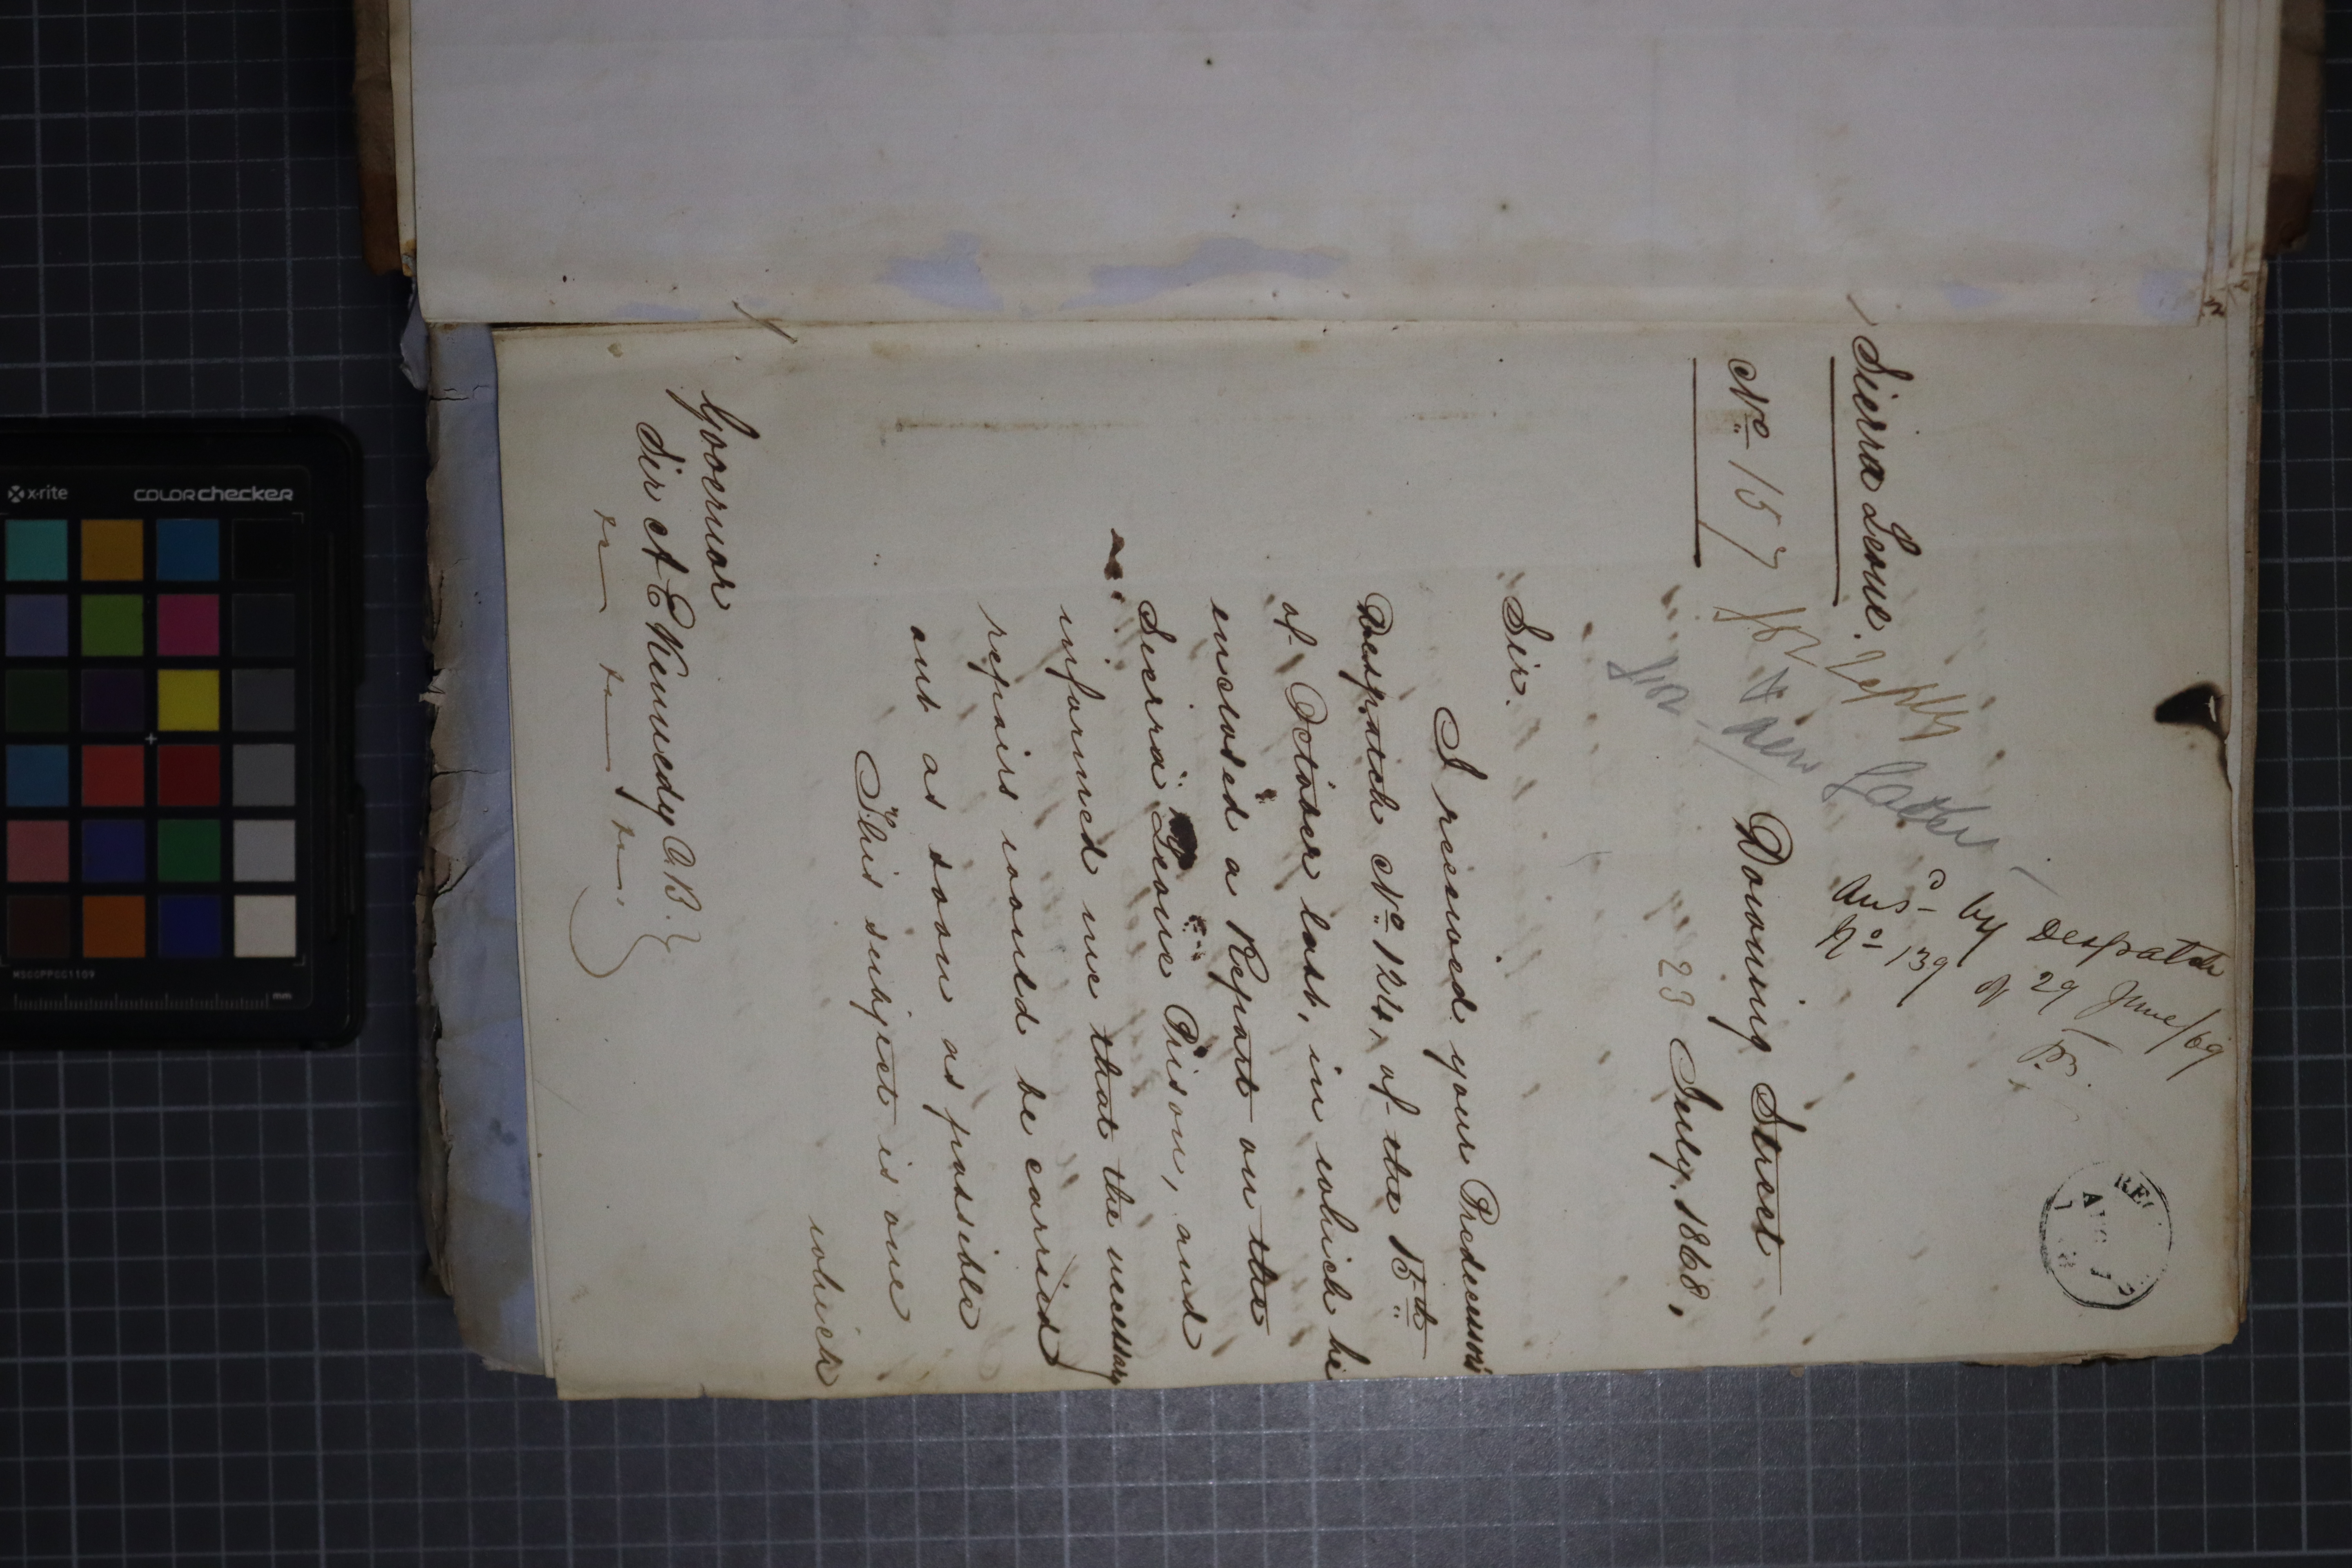 Sierra Leone.
No 157
Ansd by Despatch
No 139 of 29 June/69
REC
AUG
Downing Street
23 July, 1868,
Sir,
I received your Predecessor's
Despatch No 124, of the 15th
of October last, in which he
enclosed a Report on the
Sierra Leone Prison, and
informed me that the necessary
repairs would be carried
out as soon as possible
This subject is one
which
Governor
Sir A E Kennedy C.B.
x-rite colorchecker
MSCCPPCC1109
mm